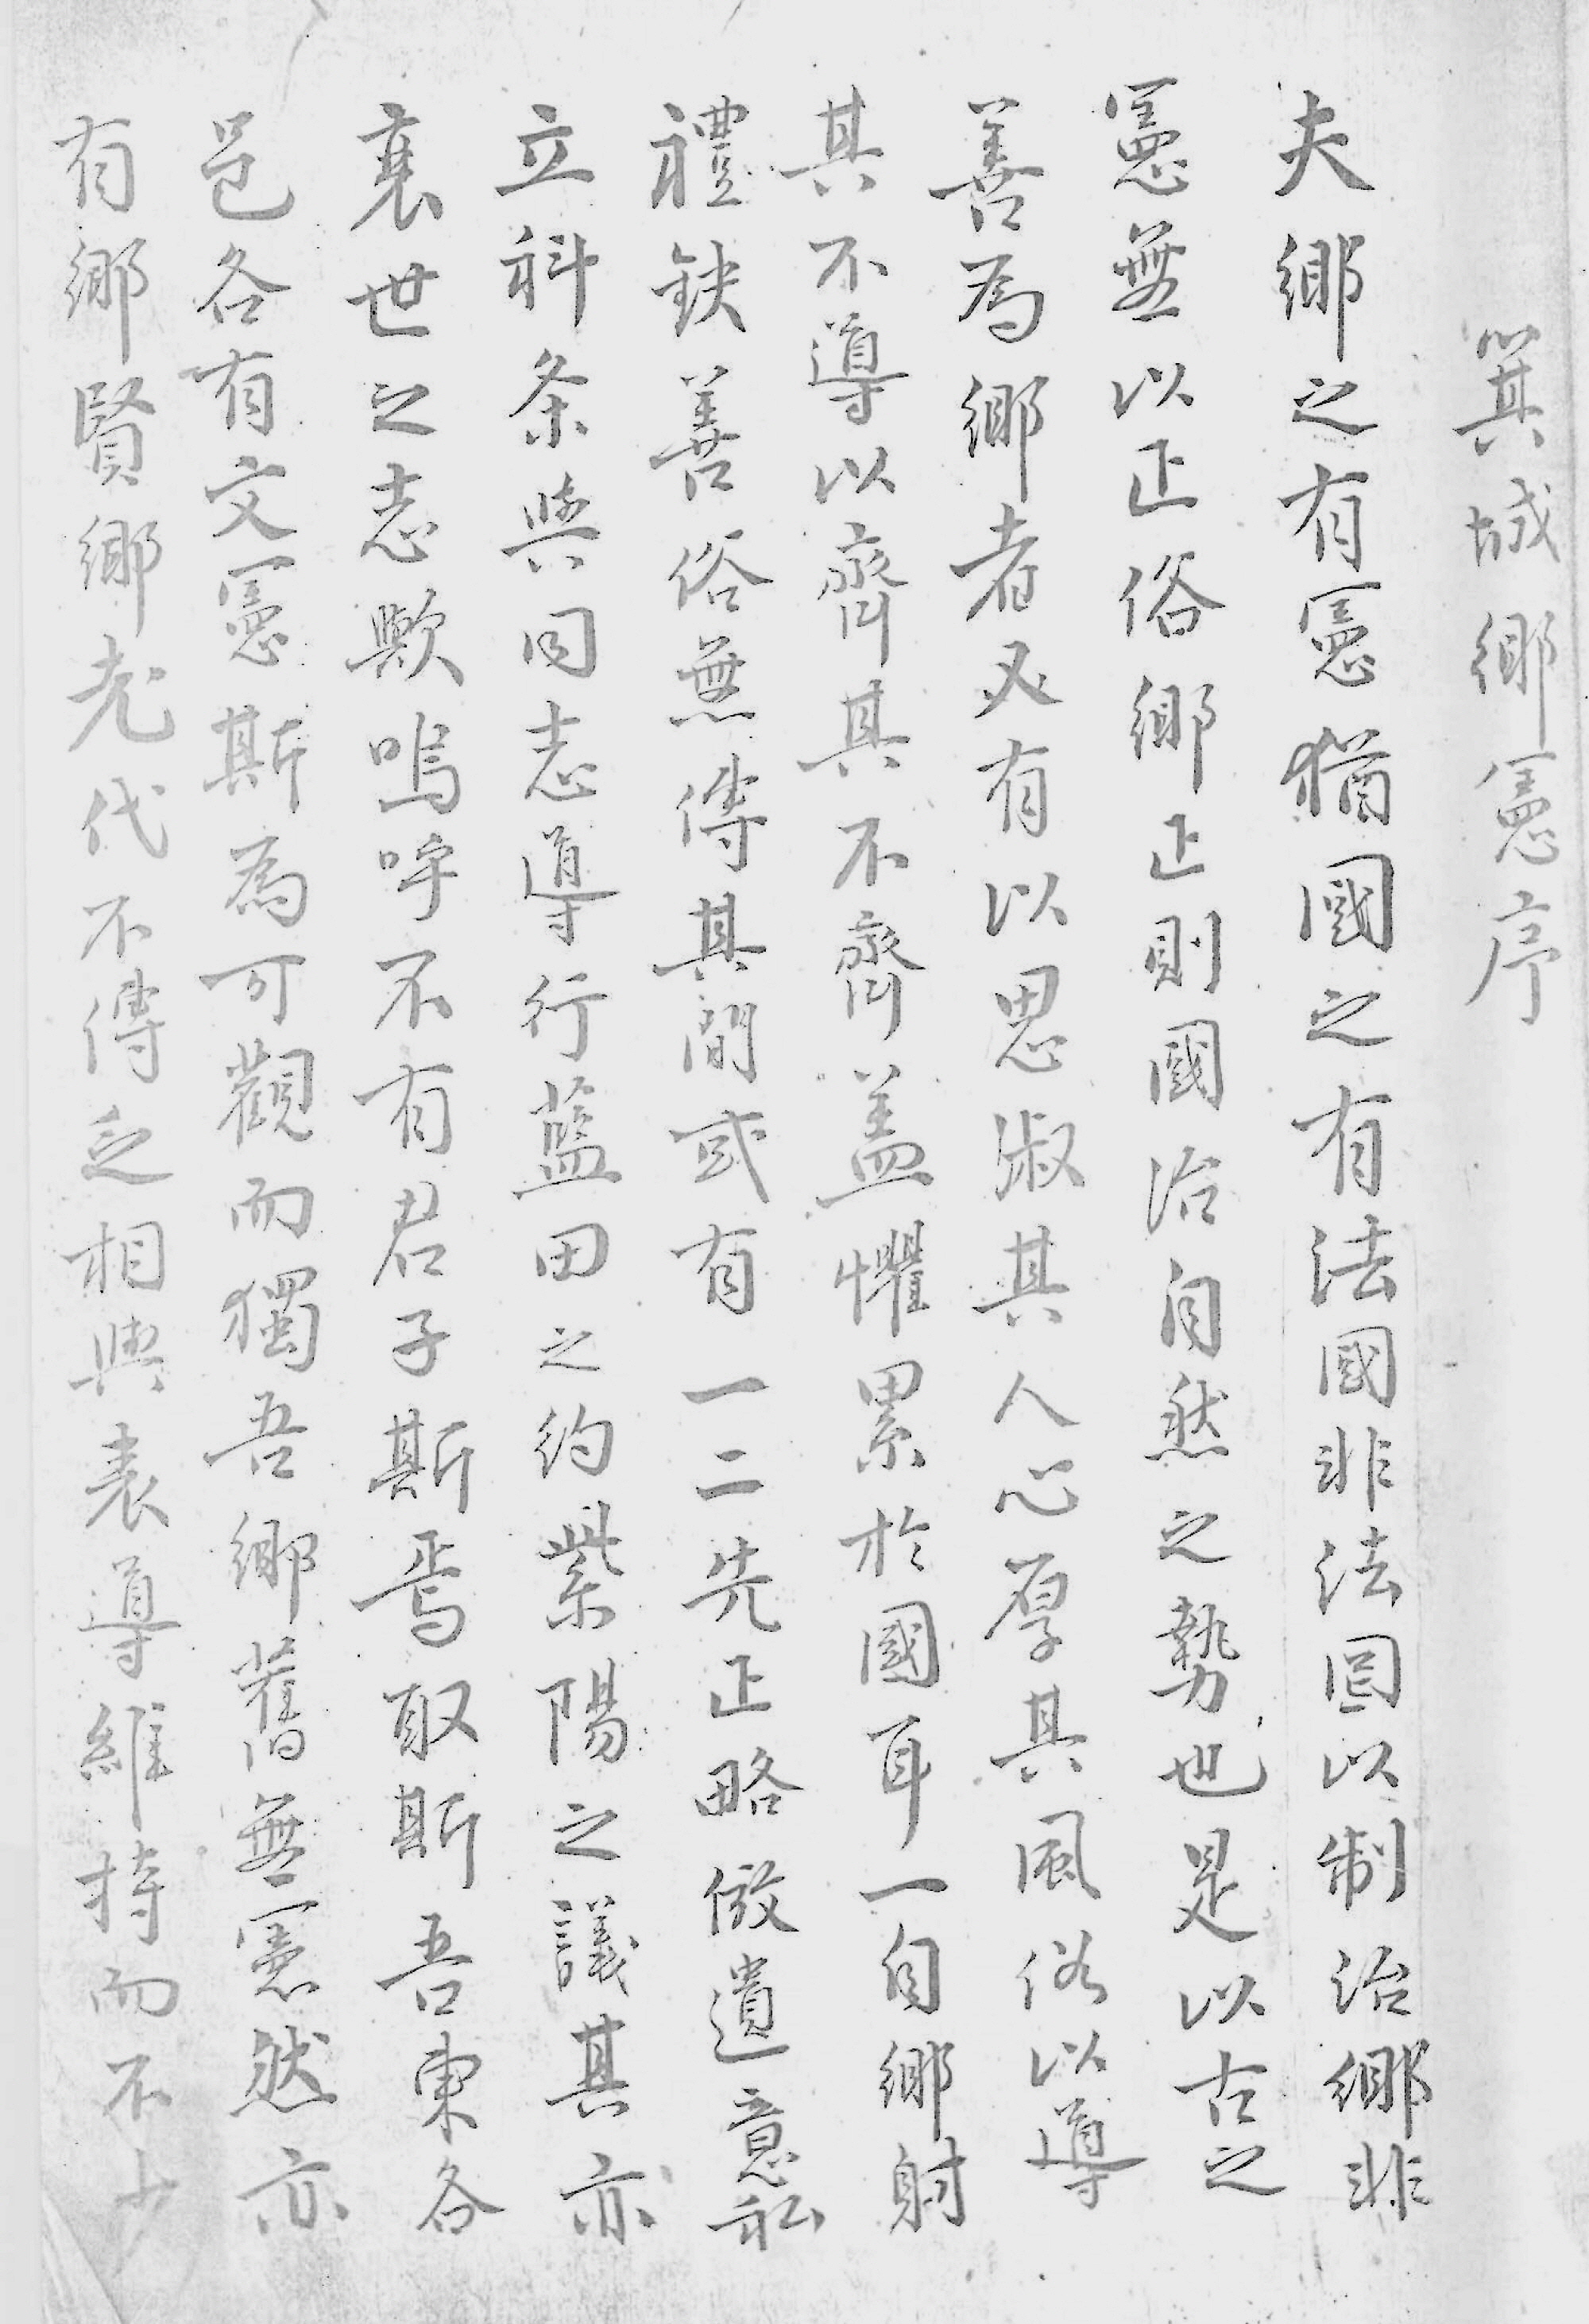 箕城鄉憲序
夫鄉之有憲猶國之有法國非法罔以制治鄉非
憲無以正俗鄉正則國治自然之勢也是以古之
善為鄉者必有以思淑其人心厚其風俗以導
其不導以齊其不齊盖懼累於國耳一自鄉射
禮缺善俗無傳其間或有一二先正略倣遺意私
立科条與同志導行藍田之約紫陽之議其亦
衰世之志歟嗚呼不有君子斯焉取斯吾東各
邑各有文憲斯為可觀而獨吾鄉舊無憲然亦
有鄉賢鄉老代不傳乏相與表導維持而不少